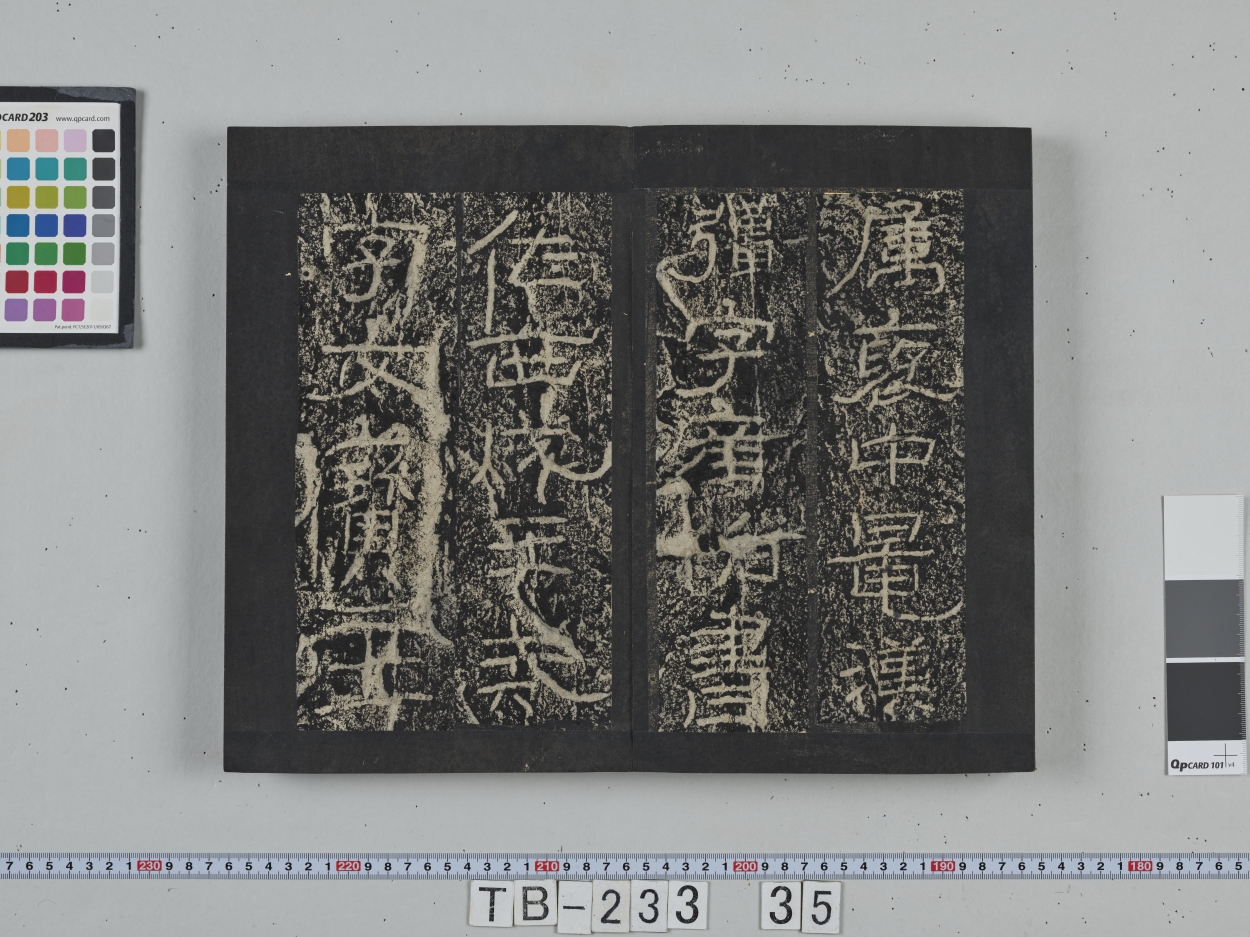 屬褒中晁漢
彊字產伯書
佐西成王戒
字文寶主
CARD 203 www.qpcard.com
QPCARD 101 v4
7 6 5 4 3 2 1 230 9 8 7 6 5 4 3 2 1 220 9 8 7 6 5 4 3 2 1 210 9 8 7 6 5 4 3 2 1 200 9 8 7 6 5 4 3 2 1 190 9 8 7 6 5 4 3 2 1 180 9 8 7 6 5
TB-233 35